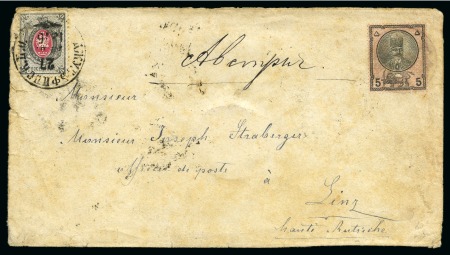 27
Abempur
5 5
Monsieur
Monsieur Joseph Straberger
office de poste
à
Linz
haute Autriche